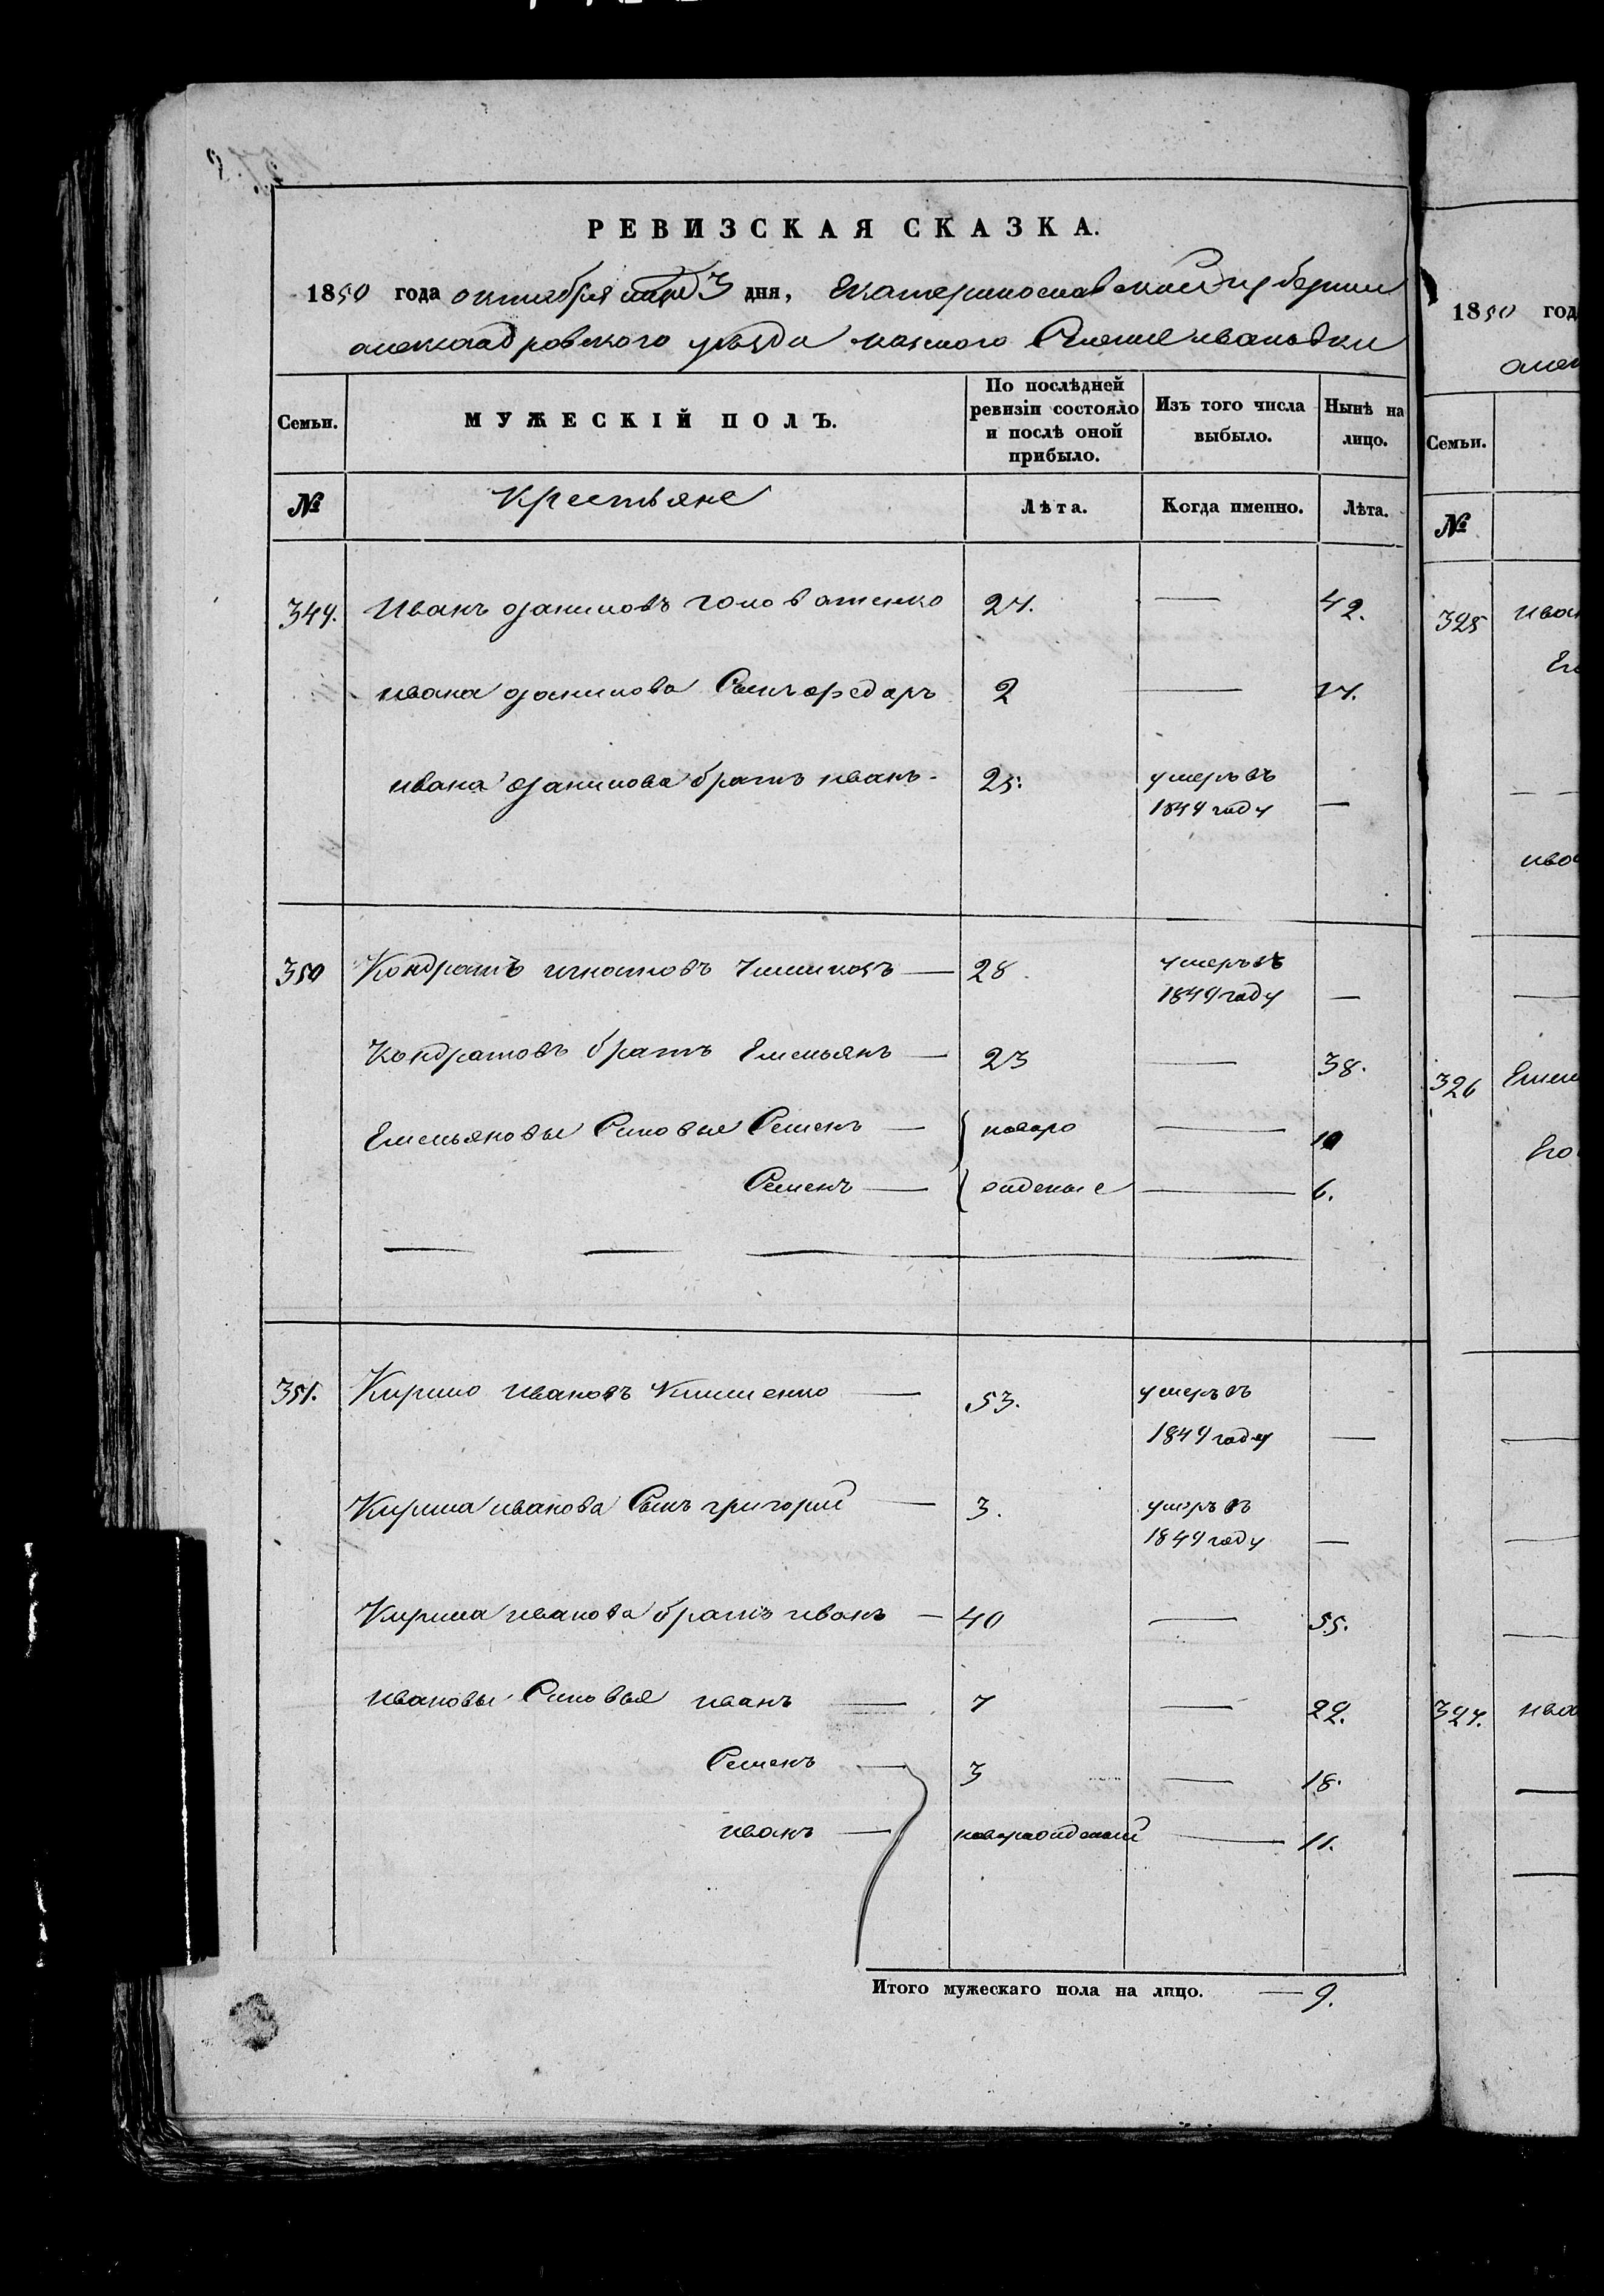 РЕВИЗСКАЯ СКАЗКА.
1850 года октября 3 дня, Екатеринославской губернии
александровского уѣзда казенного Селенія ивановки
Семьи.
МУЖЕСКІЙ ПОЛЪ.
По послѣдней ревизіи состояло и послѣ оной прибыло.
Изъ того числа выбыло.
Нынѣ на лицо.
№
Крестьяне
Лѣта.
Когда именно.
Лѣта.
349. Иванъ даниловъ головатенко 27. — 42.
ивана данилова Сынъ федоръ 2 — 17.
ивана данилова братъ иванъ 25. умеръ въ
1849 году —
350 Кондратъ игнатовъ 28 умеръ въ
1849 году —
Кондратовъ братъ Емельянъ — 23 — 38.
Емельяновы Сыновья Семенъ — новоро — 10
Семенъ — жденые — 6.
351. Кирило ивановъ Клименко — 53. умеръ въ
1849 году —
Кирила иванова Сынъ григорий — 3. умеръ въ
1849 году —
Кирила иванова братъ иванъ — 40 — 55.
ивановы Сыновья иванъ — 7 — 22.
Семенъ — 3 — 18.
иванъ — новорожденый — 11.
Итого мужескаго пола на лицо. — 9.
1850 год
Семьи.
№
325
326
327.